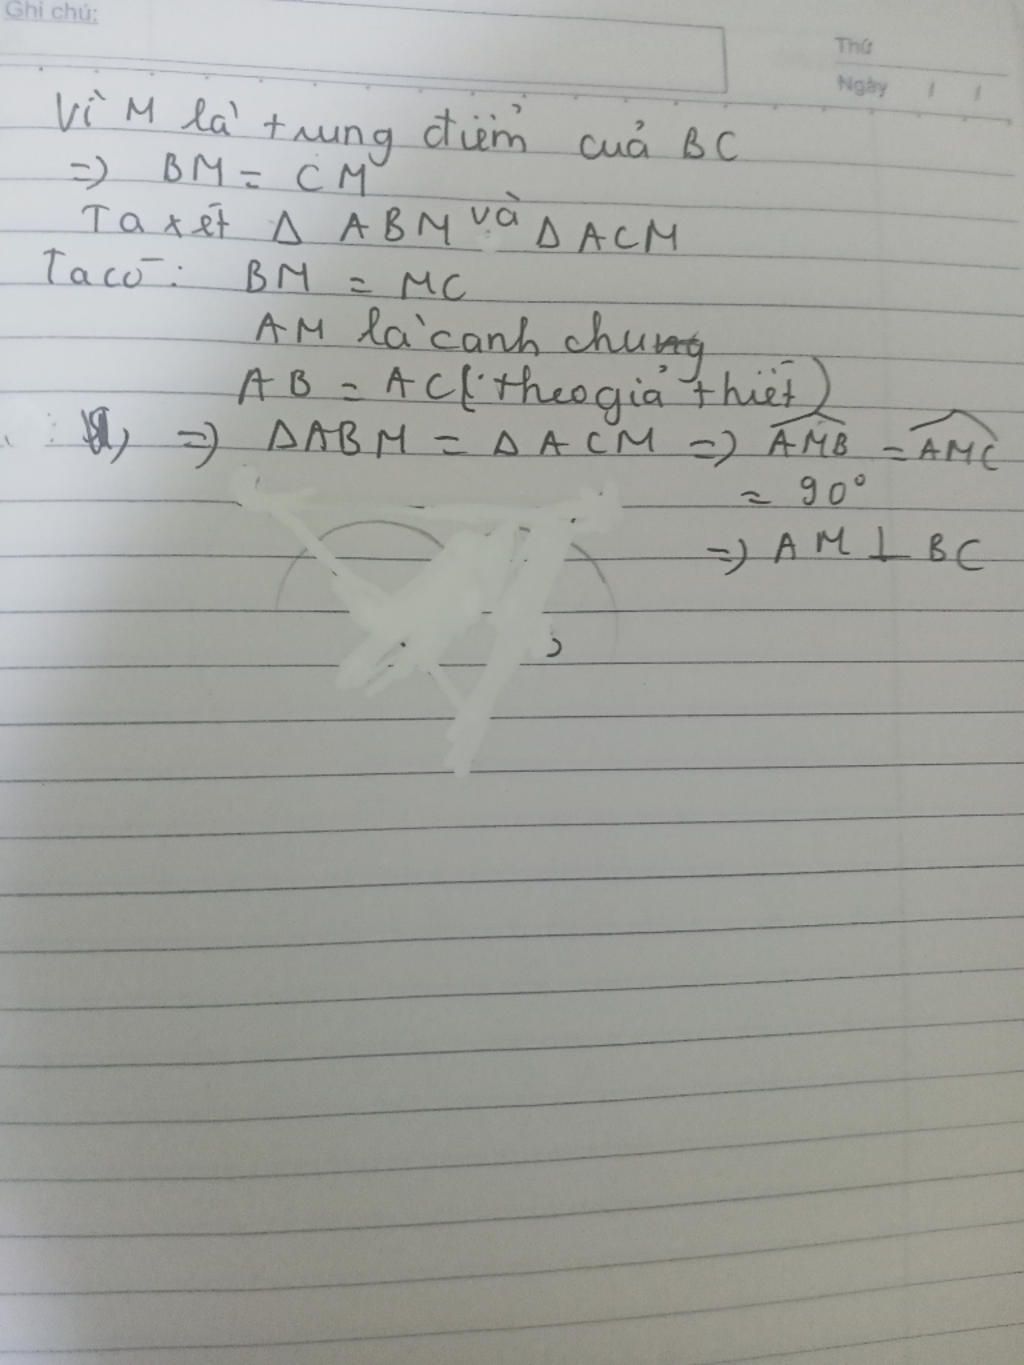 Ghi chú:
Thứ
Ngày / /
Vì M là trung điểm của BC
=> BM = CM
Ta xét Δ ABM và Δ ACM
Ta có: BM = MC
AM là cạnh chung
AB = AC (theo giả thiết)
=> ΔABM = ΔACM => AMB = AMC
= 90°
=> AM ⊥ BC